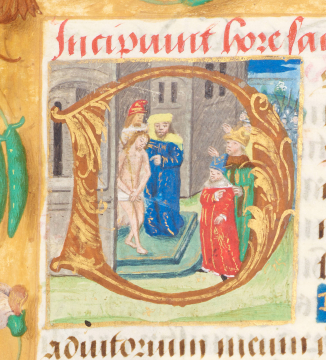 Incipiunt hore sa
adiutorium meum